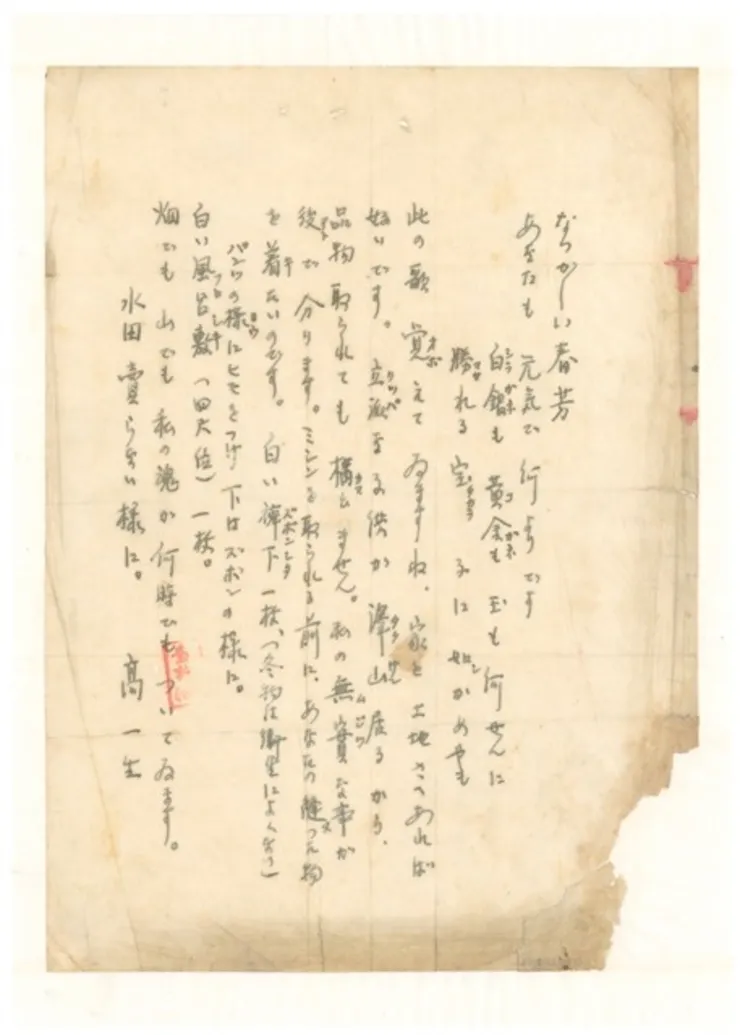 なつかしい春芳
あなたも 元気で 何よりです
白銀も 黄金も 玉も 何せんに
勝れる 宝 子に 如かめやも
此の歌 覚えて ゐますね、家と土地さへあれば
好いです。 立派な子供が 澤山居るから、
品物取られても 構ひません。私の無實な事が
後で 分ります。ミシンを取られる前に、あなたの縫った物
を着たいのです。 白い褌下一枚、(冬物は衛生によくない)
パンツの様にヒモをつけ 下はズボンの様に。
白い風呂敷(四尺位)一枚。
畑でも 山でも 私の魂が 何時でもついてゐます。
水田賣らない様に。 高一生